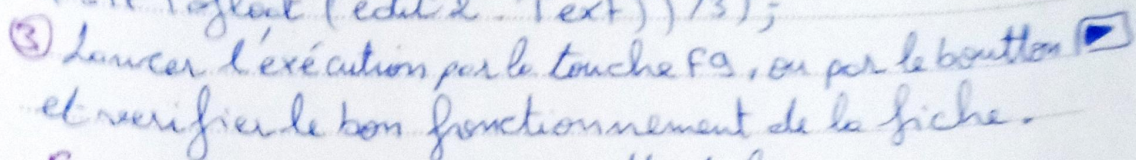 (edit2.Text))/3);
③ Lancer l'exécution par la touche F9, ou par le boutton ▶
et verifier le bon fonctionnement de la fiche.